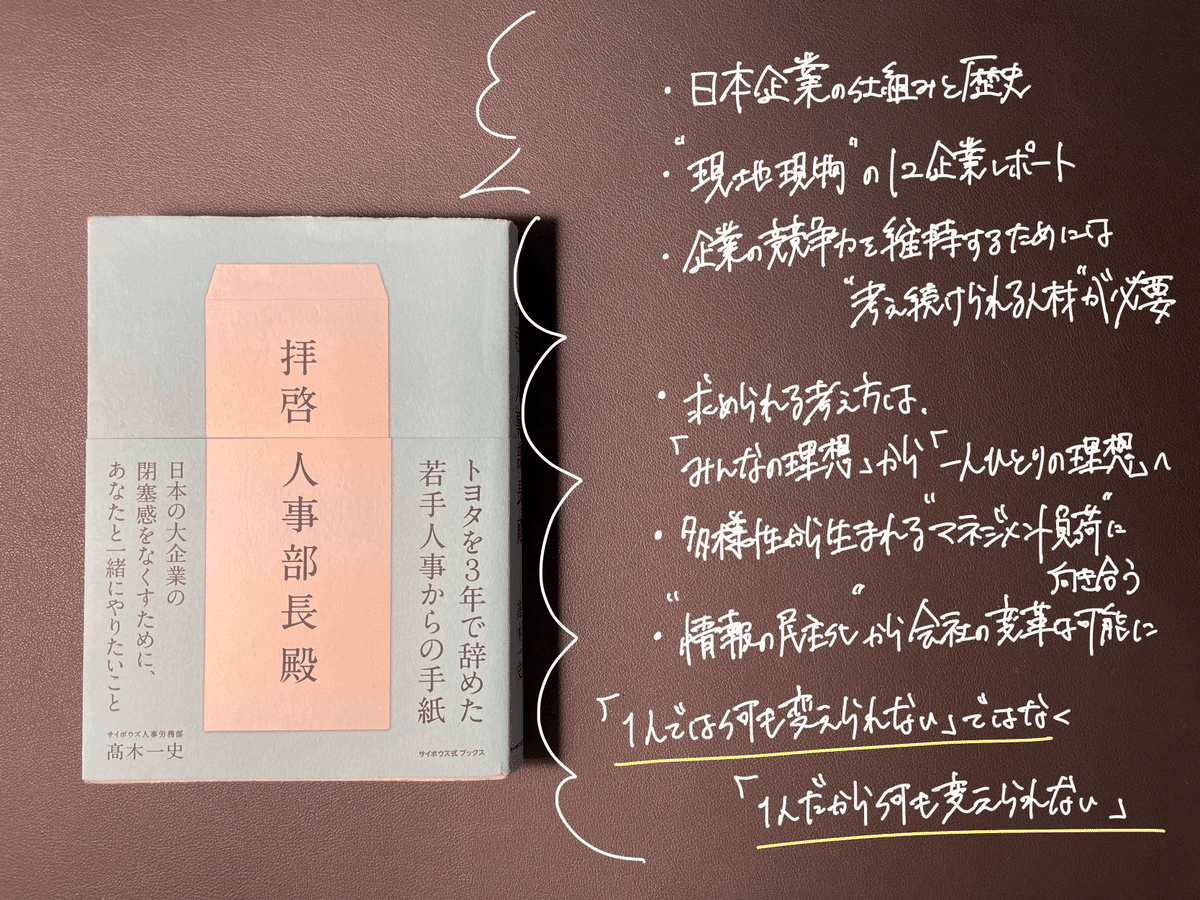 拝啓 人事部長殿
トヨタを3年で辞めた
若手人事からの手紙
日本の大企業の
閉塞感をなくすために、
あなたと一緒にやりたいこと
サイボウズ人事労務部
髙木一史
サイボウズ式ブックス
・日本企業の仕組みと歴史
・"現地現物"の12企業レポート
・企業の競争力を維持するためには
"考え続けられる人材"が必要
・求められる考え方は、
「みんなの理想」から「一人ひとりの理想」へ
・多様性から生まれる"マネジメント負荷"に
向き合う
・"情報の民主化"から会社の変革は可能に
「1人では何も変えられない」ではなく
「1人だから何も変えられない」